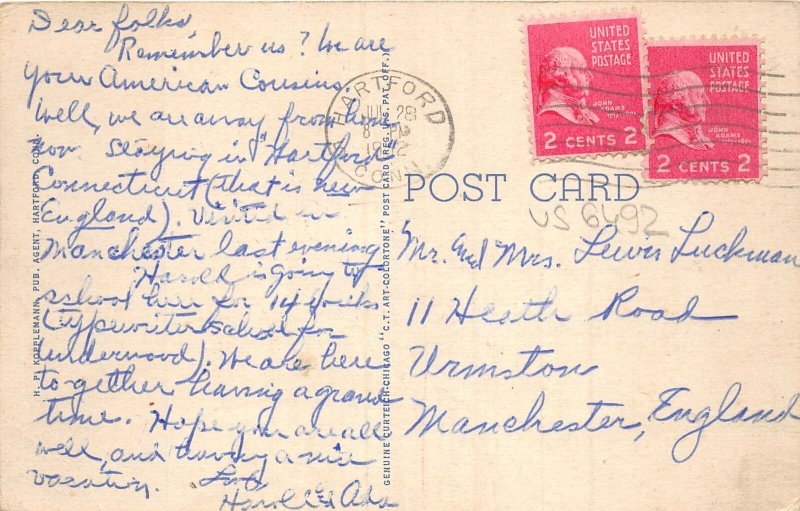 Dear folks,
Remember us? We are
your American Cousins.
Well, we are away from home
now. Staying in "Hartford"
Connecticut (that is new
England). Visited in
Manchester last evening
Harold is going to
school here for 14 weeks
(typewriter school for
Underwood). We are here
to-gether having a grand
time. Hope you are all
well, and having a nice
vacation.
Harold & Ada
H. P. KOPPLEMANN, PUB. AGENT, HARTFORD, CONN.
GENUINE CURTEICH-CHICAGO "C.T. ART-COLORTONE" POST CARD (REG. U.S. PAT. OFF.)
HARTFORD
JUL 28
8 PM
CONN.
UNITED
STATES
POSTAGE
JOHN
ADAMS
2 CENTS 2
UNITED
STATES
POSTAGE
JOHN
ADAMS
2 CENTS 2
POST CARD
US 6492
Mr. and Mrs. Lewis Luckman
11 Heath Road
Urmston
Manchester, England